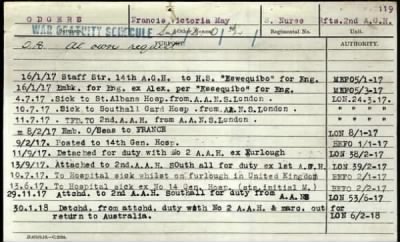 119
ODGERS Francis Victoria May S. Nurse Rfts. 2nd A.G.H.
WAR GRATUITY SCHEDULE Regimental No. Unit
At own request
AUTHORITY.
16/1/17 Staff Str. 14th A.G.H. to H.S. "Eewequibo" for Eng. MEF05/1-17
16/1/17 Embk. for Eng. ex Alex. per "Essequibo" for Eng. MEF03/2-17
4.7.17. Sick to St.Albans Hosp.from.A.A.N.S.London. LON.24.3.17.
10.7.17. Sick to Southall Gard Hosp.from A.A.N.S.London
11.7.17. TFR.TO 2nd.A.A.H. from A.A.N.S.London.
m 8/2/17 Emb. O/Seas to FRANCE LON 8/1-17
9/2/17. Posted to 14th Gen. Hosp. BEFO 1/1-17
11/9/17. Detached for duty with No 2 AAH ex Furlough LON 38/2-17
13/9/17. Attached to 2nd.A.A.H. SOuth all for duty ex 1st A.G.H LON 39/2-17
10/6/17 To Hospital sick whilst on furlough in United Kingdom BEFO 2/1-17
13.6.17. To Hospital sick ex No 14 Gen. Hosp. (sts.initial M.) BEFO 2/2-17
29.11.17 Attchd. to 2nd A.A.H. Southall for duty from A.A NS LON 53/6-17
30.1.18 Detchd. from attchd. duty with No 2 A.A.H. & marc. out for
return to Australia. LON 6/2-18